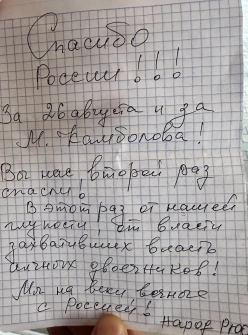 Спасибо
России!!!
За 26 августа и за
М. Камболова!
Вы нас второй раз
спасли!
В этот раз от нашей
глупости, от власти
захвативших власть
вечных двоечников!
Мы на веки вечные
с Россией!
Народ